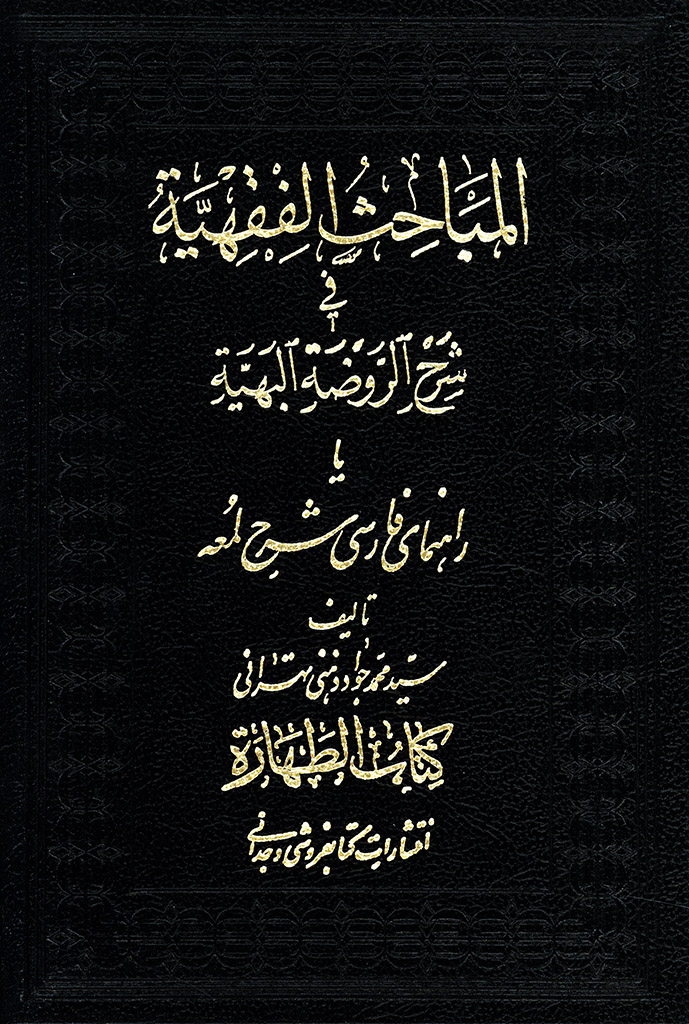 المَبَاحِثُ الفِقهِیَّةُ
فی
شَرحِ الرَّوضَةِ البَهِیَّةِ
یا
راهنمای فارسی شرح لمعه
تألیف
سیّد محمّد جواد ذهنی تهرانی
کِتَابُ الطَّهَارَةِ
انتشارات کتابفروشی وجدانی